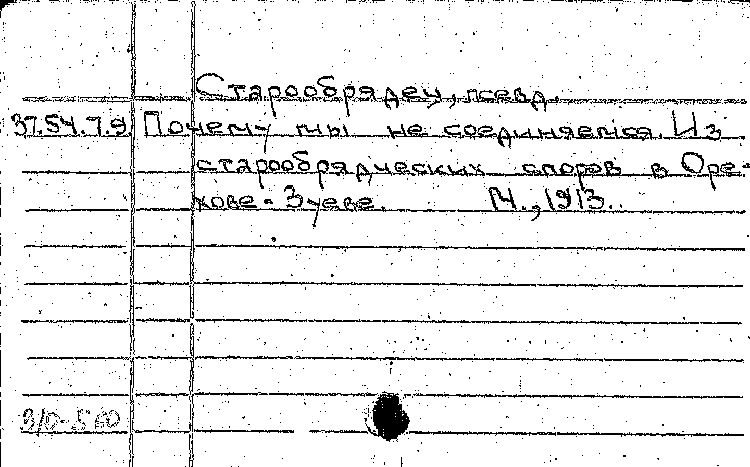 Старообрядец, псевд.
37.54.7.9. Почему мы не соединяемся. Из
старообрядческих споров в Оре-
хове-Зуеве. М., 1913.